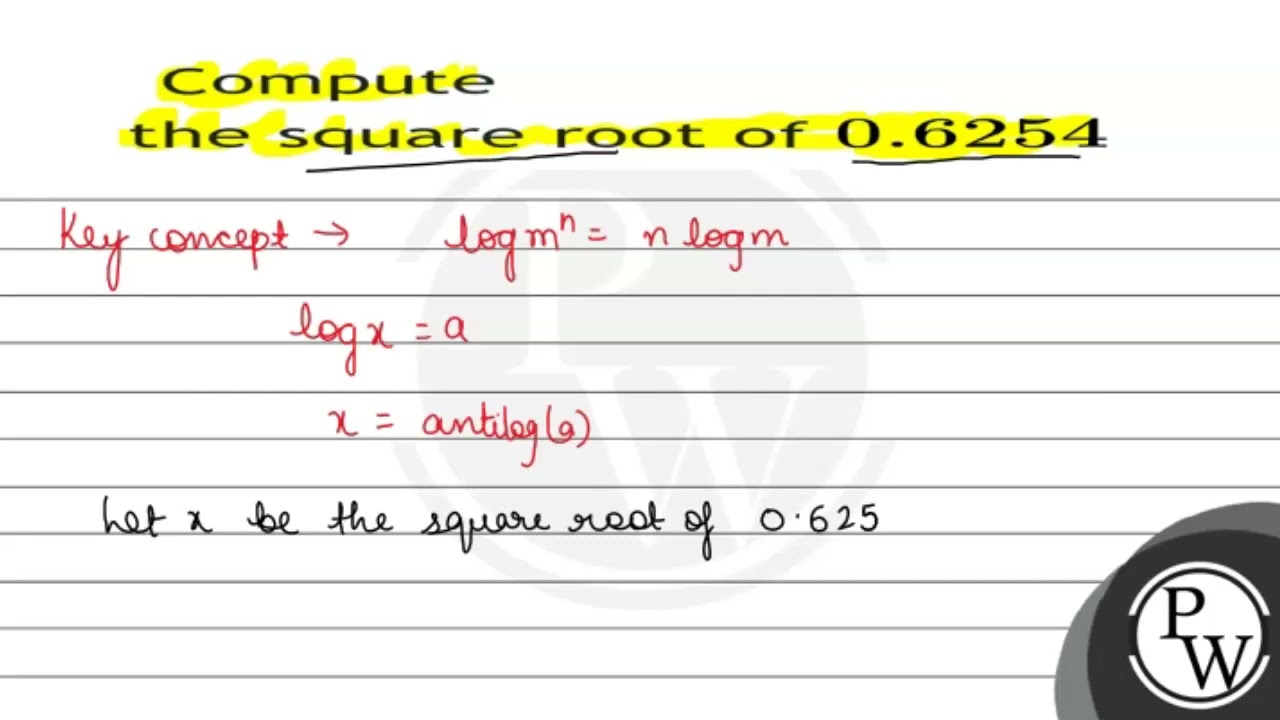 Compute
the square root of 0.6254
Key concept → log mⁿ = n log m
log x = a
x = antilog(a)
Let x be the square root of 0.625
P
W
P
W